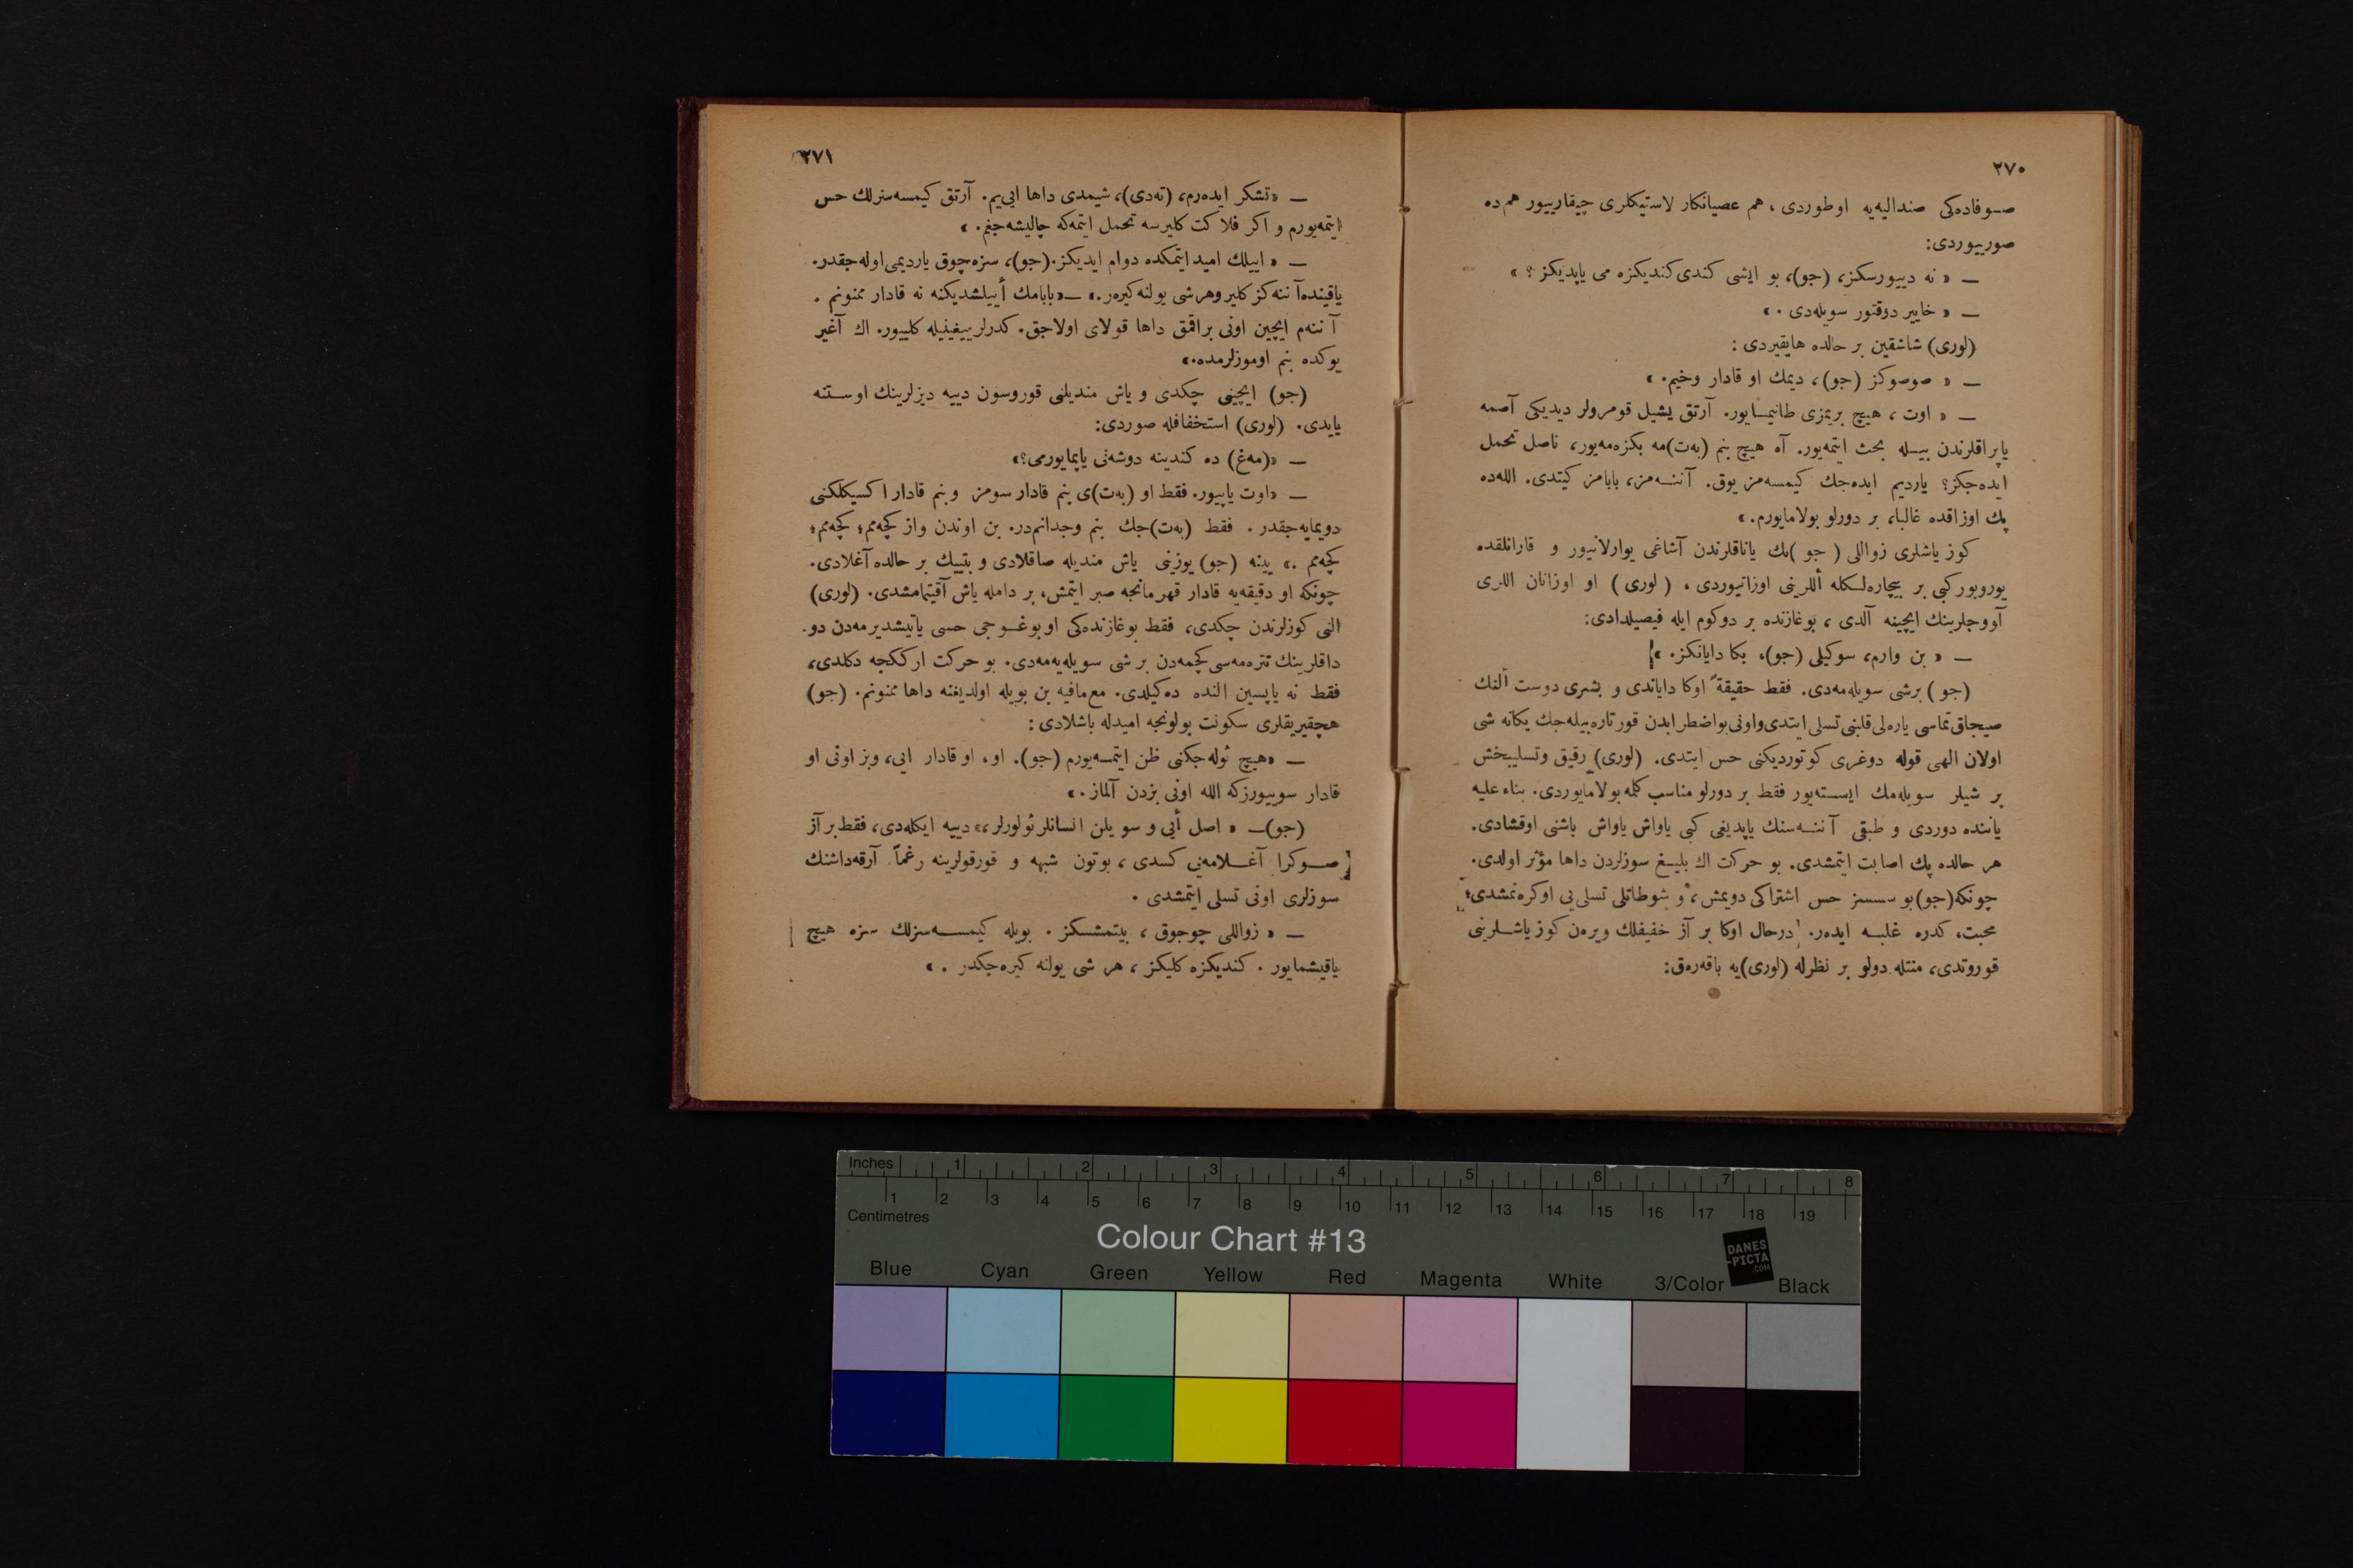 ٢٧٠
صوفادەكی صندالیەیە اوطوردی، هم عصیانكار لاستیكلری چیقارییور همدە
صورییوردی:
— « نە دییورسكز، (جو)، بو ایشی كندی كندیكزە می یاپدیكز ؟ »
— « خایر دوقتور سویلەدی . »
(لوری) شاشقین بر حالدە هایقیردی :
— « صوصوكز (جو)، دیمك او قادار وخیم. »
— « اوت ، هیچ بریمزی طانیمایور. آرتق یشیل قومرولر دیدیكی آصمە
یاپراقلرندن بیلە بحث ایتمەیور. آە هیچ بنم (بەت)مە بكزەمەیور، ناصل تحمل
ایدەجكز؟ یاردیم ایدەجك كیمسەمز یوق. آننەمز، بابامز كیتدی. اللەدە
پك اوزاقدە غالبا، بر دورلو بولامایورم. »
كوز یاشلری زواللی ( جو )نك یاناقلرندن آشاغی یوارلانیور و قارانلقدە
یوروبور كبی بر بیچارەلكلە أللرینی اوزاتیوردی ، ( لوری ) او اوزانان اللری
آووجلرینك ایچینە آلدی ، بوغازندە بر دوكوم ایلە فیصیلدادی:
— « بن وارم، سوكیلی (جو)، بكا دایانكز. »
(جو ) برشی سویلەمەدی. فقط حقیقةً اوكا دایاندی و بشری دوست ألنك
صیجاق تماسی یارەلی قلبنی تسلی ایتدی و اونی بو اضطرابدن قورتارەبیلەجك یكانە شی
اولان الهی قولە دوغری كوتوردیكنی حس ایتدی. (لوری) رقیق وتسلیبخش
بر شیلر سویلەمك ایستەیور فقط بر دورلو مناسب كلمە بولامایوردی. بناء علیە
یانندە دوردی و طبقی آننەسنك یاپدیغی كبی یاواش یاواش باشنی اوقشادی.
هر حالدە پك اصابت ایتمشدی. بو حركت اك بلیغ سوزلردن داها مؤثر اولدی.
چونكە(جو)بو سسسز حس اشتراكی دویمش، و شوطاتلی تسلی یی اوكرەنمشدی؛
محبت، كدرە غلبە ایدەر. درحال اوكا بر آز خفیفلك ویرەن كوز یاشلرینی
قوروتدی، منتلە دولو بر نظرلە (لوری)یە باقەرەق:
٢٧١
— «تشكر ایدەرم، (تەدی)، شیمدی داها ایی یم. آرتق كیمسەسزلك حس
ایتمەیورم و اكر فلاكت كلیرسە تحمل ایتمەكە چالیشەجغم. »
— « اییلك امید ایتمكدە دوام ایدیكز.(جو)، سزە چوق یاردیمی اولەجقدر.
یاقیندە آننەكز كلیر وهرشی یولنە كیرەر.» —«بابامك أییلشدیكنە نە قادار ممنونم .
آننەم ایچین اونی براقمق داها قولای اولاجق. كدرلر ییغینیلە كلییور. اك آغیر
یوكدە بنم اوموزلرمدە.»
(جو) ایچینی چكدی و یاش مندیلنی قوروسون دییە دیزلرینك اوستنە
یایدی. (لوری) استخفافلە صوردی:
— «(مەغ) دە كندینە دوشەنی یاپمایورمی؟»
— «اوت یاپیور. فقط او (بەت)ی بنم قادار سومز و بنم قادار اكسیكلكنی
دویمایەجقدر . فقط (بەت)جك بنم وجدانمدر. بن اوندن واز كچەمم؛ كچەمم؛
كچەمم .» یینە (جو) یوزینی یاش مندیلە صاقلادی و بتیبك بر حالدە آغلادی.
چونكە او دقیقەیە قادار قهرمانجە صبر ایتمش، بر داملە یاش آقیتمامشدی. (لوری)
النی كوزلرندن چكدی، فقط بوغازندەكی او بوغوجی حسی یاتیشدیرمەدن دو.
داقلرینك تترەمەسی كچمەدن بر شی سویلەیەمەدی. بو حركت ارككجە دكلدی،
فقط نە یاپسین الندە دەكیلدی. مع مافیە بن بویلە اولدیغنە داها ممنونم. (جو)
هچقیریقلری سكونت بولونجە امیدلە باشلادی :
— «هیچ ئولەجكنی ظن ایتمەیورم (جو). او، او قادار ایی، وبز اونی او
قادار سوییورزكە اللە اونی بزدن آلماز.»
(جو)— « اصل أیی و سویلن انسانلر ئولورلر،» دییە ایكلەدی، فقط بر آز
صوكرا آغلامەیی كسدی ، بوتون شبهە و قورقولرینە رغماً آرقەداشنك
سوزلری اونی تسلی ایتمشدی .
— « زواللی چوجوق ، بیتمشسكز . بویلە كیمسەسزلك سزە هیچ
یاقیشمایور . كندیكزە كلیكز ، هر شی یولنە كیرەجكدر . »
Inches 1 2 3 4 5 6 7 8
1 2 3 4 5 6 7 8 9 10 11 12 13 14 15 16 17 18 19
Centimetres
Colour Chart #13
DANES
-PICTA
.COM
Blue Cyan Green Yellow Red Magenta White 3/Color Black